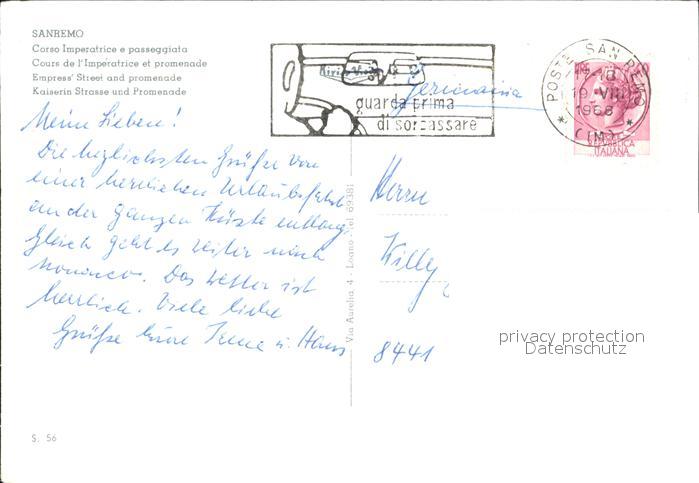 SANREMO
Corso Imperatrice e passeggiata
Cours de l'Impératrice et promenade
Empress' Street and promenade
Kaiserin Strasse und Promenade
guarda prima
di sorpassare
Germania
POSTE SAN REMO
19·VIII
1968
(IM)
REPUBBLICA
ITALIANA
Meine Lieben!
Die herzlichsten Grüße von
einer herrlichen Urlaubsfahrt
an der ganzen Küste entlang.
Gleich geht es weiter nach
Monaco. Das Wetter ist
herrlich. Viele liebe
Grüße Eure Irene u. Hans
Herrn
Willy
8441
Via Aurelia 4 - Loano - Tel. 69381
privacy protection
Datenschutz
S. 56